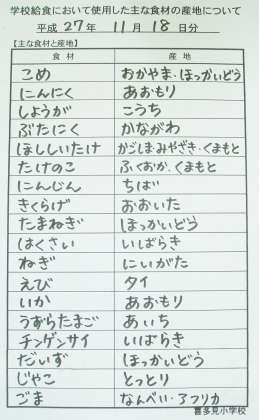 学校給食において使用した主な食材の産地について
平成 27 年 11 月 18 日分
【主な食材と産地】
食材 産地
こめ おかやま・ほっかいどう
にんにく あおもり
しょうが こうち
ぶたにく かながわ
ほししいたけ かごしまみやざき・くまもと
たけのこ ふくおか、くまもと
にんじん ちば
きくらげ おおいた
たまねぎ ほっかいどう
はくさい いばらき
ねぎ にいがた
えび タイ
いか あおもり
うずらたまご あいち
チンゲンサイ いばらき
だいず ほっかいどう
じゃこ とっとり
ごま なんべい・アフリカ
喜多見小学校